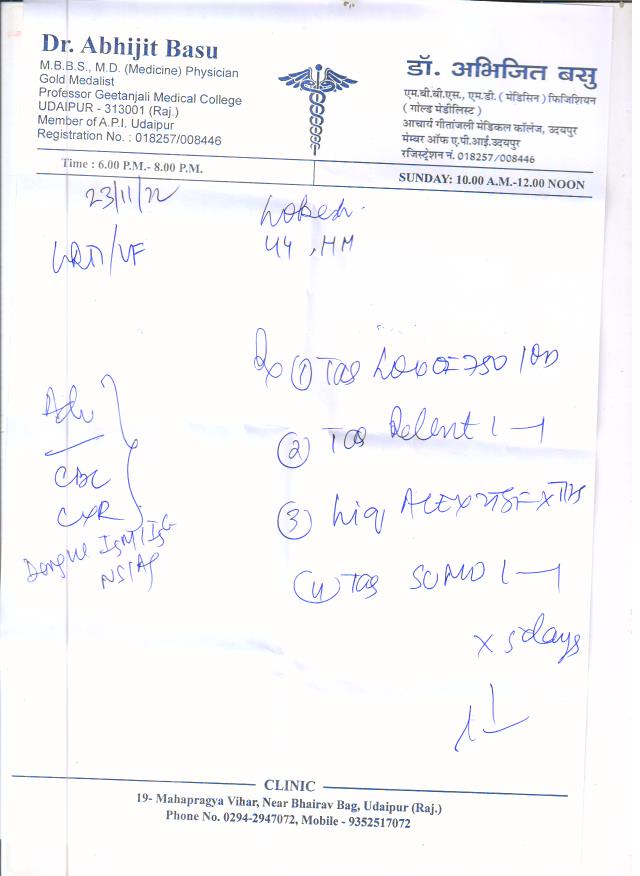 Dr. Abhijit Basu
M.B.B.S., M.D. (Medicine) Physician
Gold Medalist
Professor Geetanjali Medical College
UDAIPUR - 313001 (Raj.)
Member of A.P.I. Udaipur
Registration No. : 018257/008446
डॉ. अभिजित बसु
एम.बी.बी.एस., एम.डी. ( मेडिसिन ) फिजिशियन
( गोल्ड मेडीलिस्ट )
आचार्य गीतांजली मेडिकल कॉलेज, उदयपुर
मेम्बर ऑफ ए.पी.आई.उदयपुर
रजिस्ट्रेशन नं. 018257/008446
Time : 6.00 P.M.- 8.00 P.M.
SUNDAY: 10.00 A.M.-12.00 NOON
23/11/22
44
Rx (1) Tab 750 / OD
(2) Tab Relent 1 — 1
(3) Liq
(4) Tab SUMO 1 — 1
x 5 days
Adv
CBC
CXR
Dengue IgM/IgG
NS1Ag
CLINIC
19- Mahapragya Vihar, Near Bhairav Bag, Udaipur (Raj.)
Phone No. 0294-2947072, Mobile - 9352517072